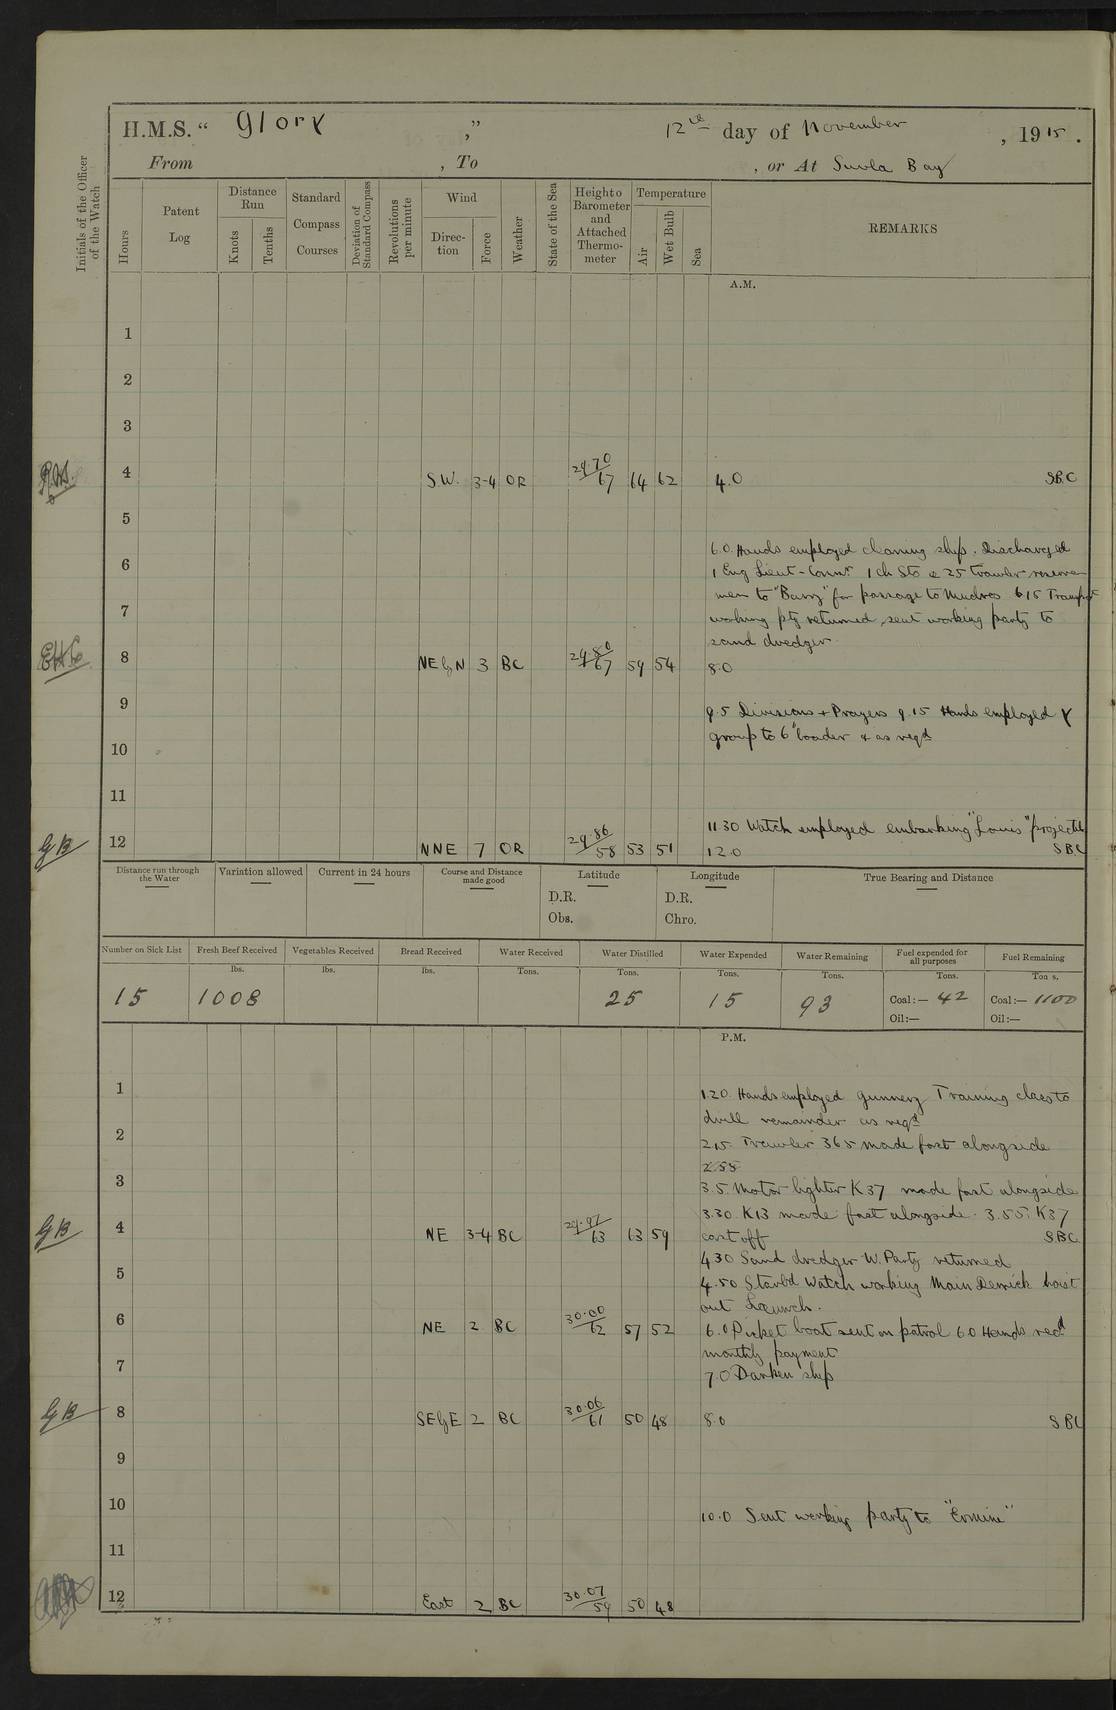 H.M.S. “ Glory ,” 12th day of November , 1915 .
From , To , or At Suvla Bay
Initials of the Officer of the Watch
Hours
Patent Log
Distance Run
Knots
Tenths
Standard Compass Courses
Deviation of Standard Compass
Revolutions per minute
Wind
Direction
Force
Weather
State of the Sea
Height o Barometer and Attached Thermometer
Temperature
Air
Wet Bulb
Sea
REMARKS
A.M.
1
2
3
4 SW. 3-4 OR 29.70/67 64 62 4.0 SBC
5
6.0. Hands employed cleaning ship. Discharged
6
1 Eng Lieut-Comr 1 ch Sto & 25 Trawler reserve
men to "Barry" for passage to Mudros 6 15 Transpt
7
working pty returned, sent working party to
sand dredger
8 NE by N 3 BC 29.80/67 59 54 8.0
9
9.5 Divisions + Prayers 9.15 Hands employed Y
group to 6" loader & as reqd
10
11
11 30 Watch employed embarking "Louis" projectile
12 NNE 7 OR 29.86/58 53 51 12.0 SBC
GB
Distance run through the Water
Variation allowed
Current in 24 hours
Course and Distance made good
Latitude
D.R.
Obs.
Longitude
D.R.
Chro.
True Bearing and Distance
Number on Sick List
Fresh Beef Received
Vegetables Received
Bread Received
Water Received
Water Distilled
Water Expended
Water Remaining
Fuel expended for all purposes
Fuel Remaining
lbs. lbs. lbs. Tons. Tons. Tons. Tons. Tons. Ton s.
15 1008 25 15 93 Coal:— 42 Coal:— 1100
Oil:— Oil:—
P.M.
1
1.20. Hands employed gunnery Training class to
drill remainder as reqd
2
2 15. Trawler 365 made fast alongside
2.55
3
3.5. Motor lighter K37 made fast alongside
3.30. K13 made fast alongside. 3.55. K37
4 NE 3-4 BC 29.97/63 63 59 cast off SBC
GB
4 30 Sand dredger W. Party returned
5
4.50 Starbd Watch working Main Derrick hoist
out Launch.
6 NE 2 BC 30.00/62 57 52 6.0 Picket boat sent on patrol 6 0 Hands recd
monthly payment
7
7.0 Darken ship
8 SE by E 2 BC 30.06/61 50 48 8.0 SBC
GB
9
10
10.0 Sent working party to "Ermine"
11
12 East 2 BC 30.07/59 50 48